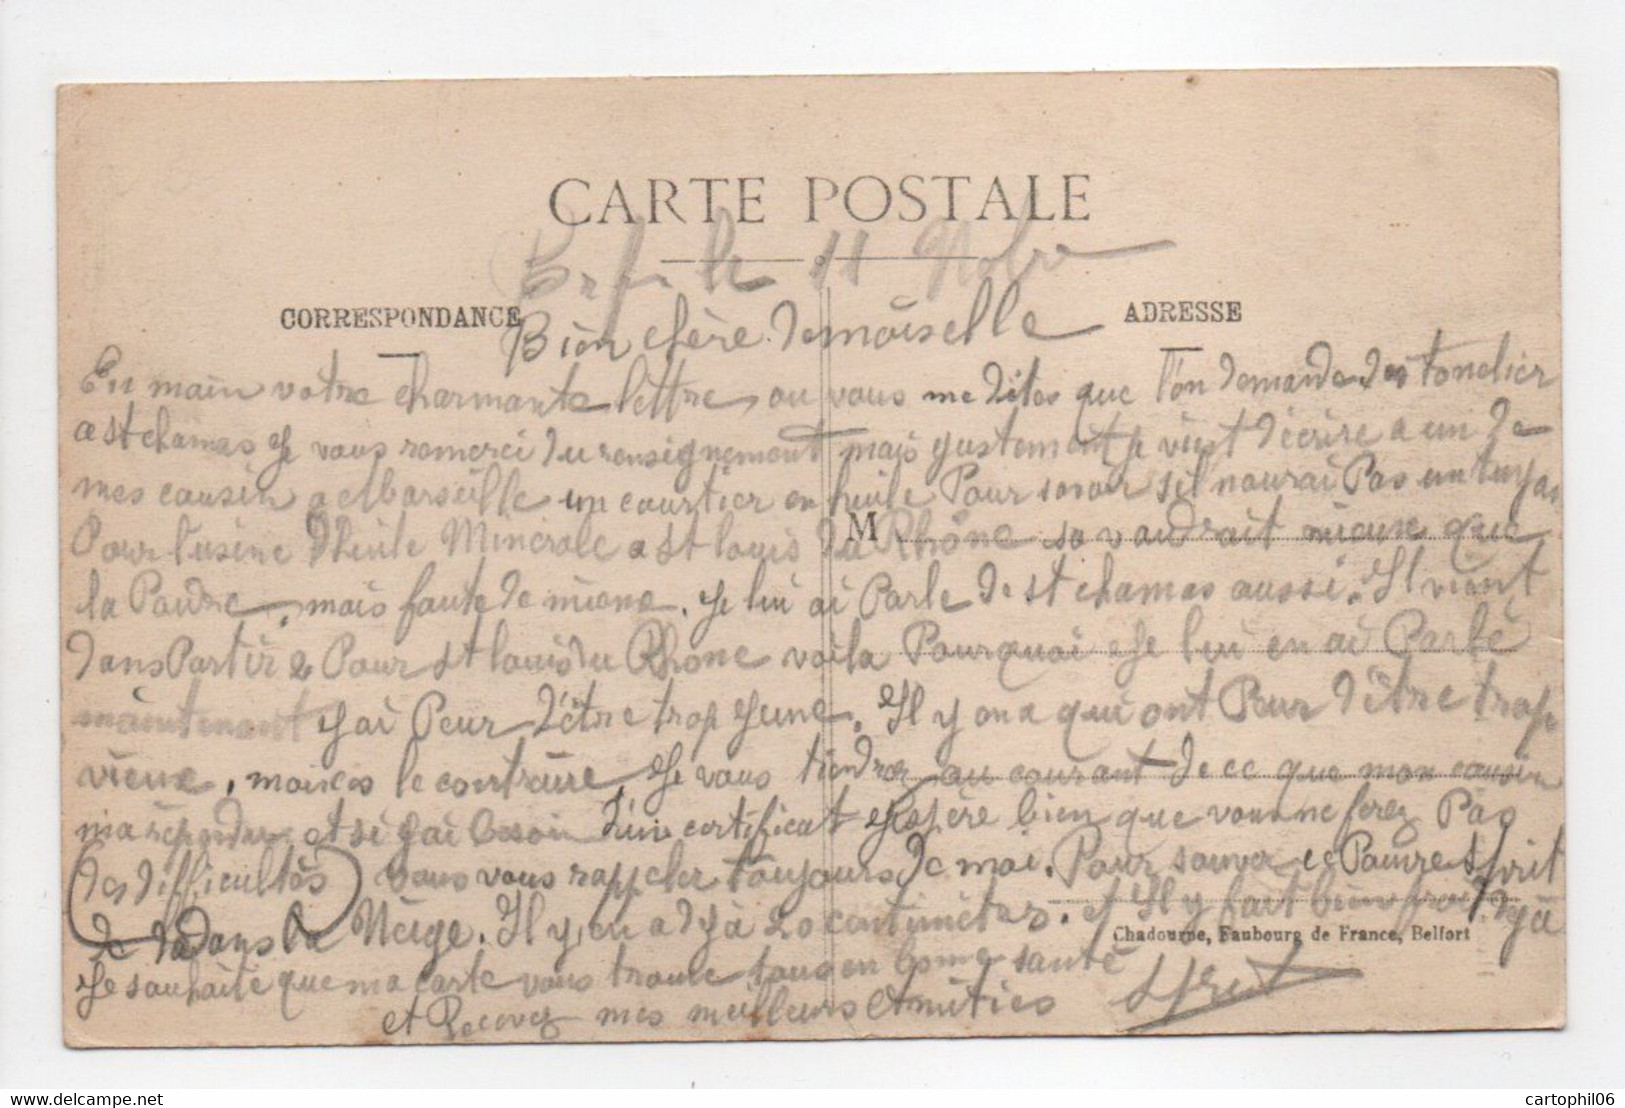 CARTE POSTALE
le 11 Nobre
CORRESPONDANCE
ADRESSE
Bien chère Demoiselle
En main votre charmante lettre, ou vous me dites que l'on demande des tonelier
a st chamas Je vous remerci du renseignement mais justement je vient d'écrire a un de
mes cousin a Marseille un courtier en huile Pour savoir s'il nourai Pas un tuyau
Pour l'usine d'huile Minérale a st louis du Rhône sa vaudrait mieux que
M
la Poudre, mais faute de mieux. Je lui ai Parle de st chamas aussi. Il vient
dans Partir Pour st louis du Rhone voila Pourquoi Je lui en ai Parlé
maintenant J'ai Peur d'être trop Jeune. Il y ona qui ont Peur d'être trop
vieux, mais le contraire Je vous tiendrez au courant de ce que mon cousin
ma répondu et si j'ai besoin d'un certificat J'espère bien que vous ne ferez Pas
des difficultés vous vous rappeler toujours de moi. Pour sauver ce Pauvre
de dans la Neige. Il y en a déjà 20 centimètres. et Il y fait bien froid déjà
Chadourne, Faubourg de France, Belfort
Je souhaite que ma carte vous trouve tous en bonne santé
et Recevez mes meilleurs Amitiés
cartophil06